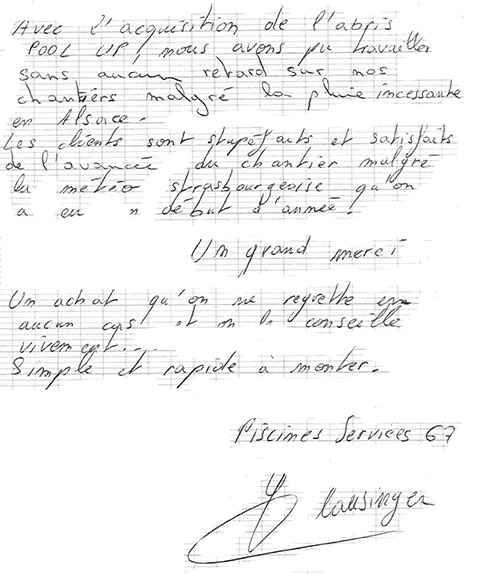 Avec l'acquisition de l'abris
POOL UP, nous avons pu travailler
sans aucun retard sur nos
chantiers malgré la pluie incessante
en Alsace.
Les clients sont stupéfaits et satisfaits
de l'avancée du chantier malgré
la météo strasbourgeoise qu'on
a eu n début d'année!
Un grand merci
Un achat qu'on ne regrette en
aucun cas et conseille
vivement...
Simple et rapide à monter.
Piscines Services 67